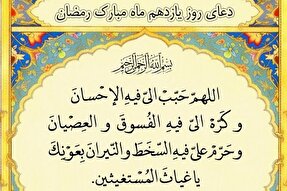 دعای روز یازدهم ماه مبارک رمضان
بسم الله الرحمن الرحیم
اللهم حَبّب الیّ فیهِ الإحْسانَ
و کَرّهْ الیّ فیهِ الفُسوقَ و العِصْیانَ
وحَرّم علیّ فیهِ السّخَطَ والنّیرانَ بِعَوْنِکَ
یا غیاثَ المُسْتغیثین.